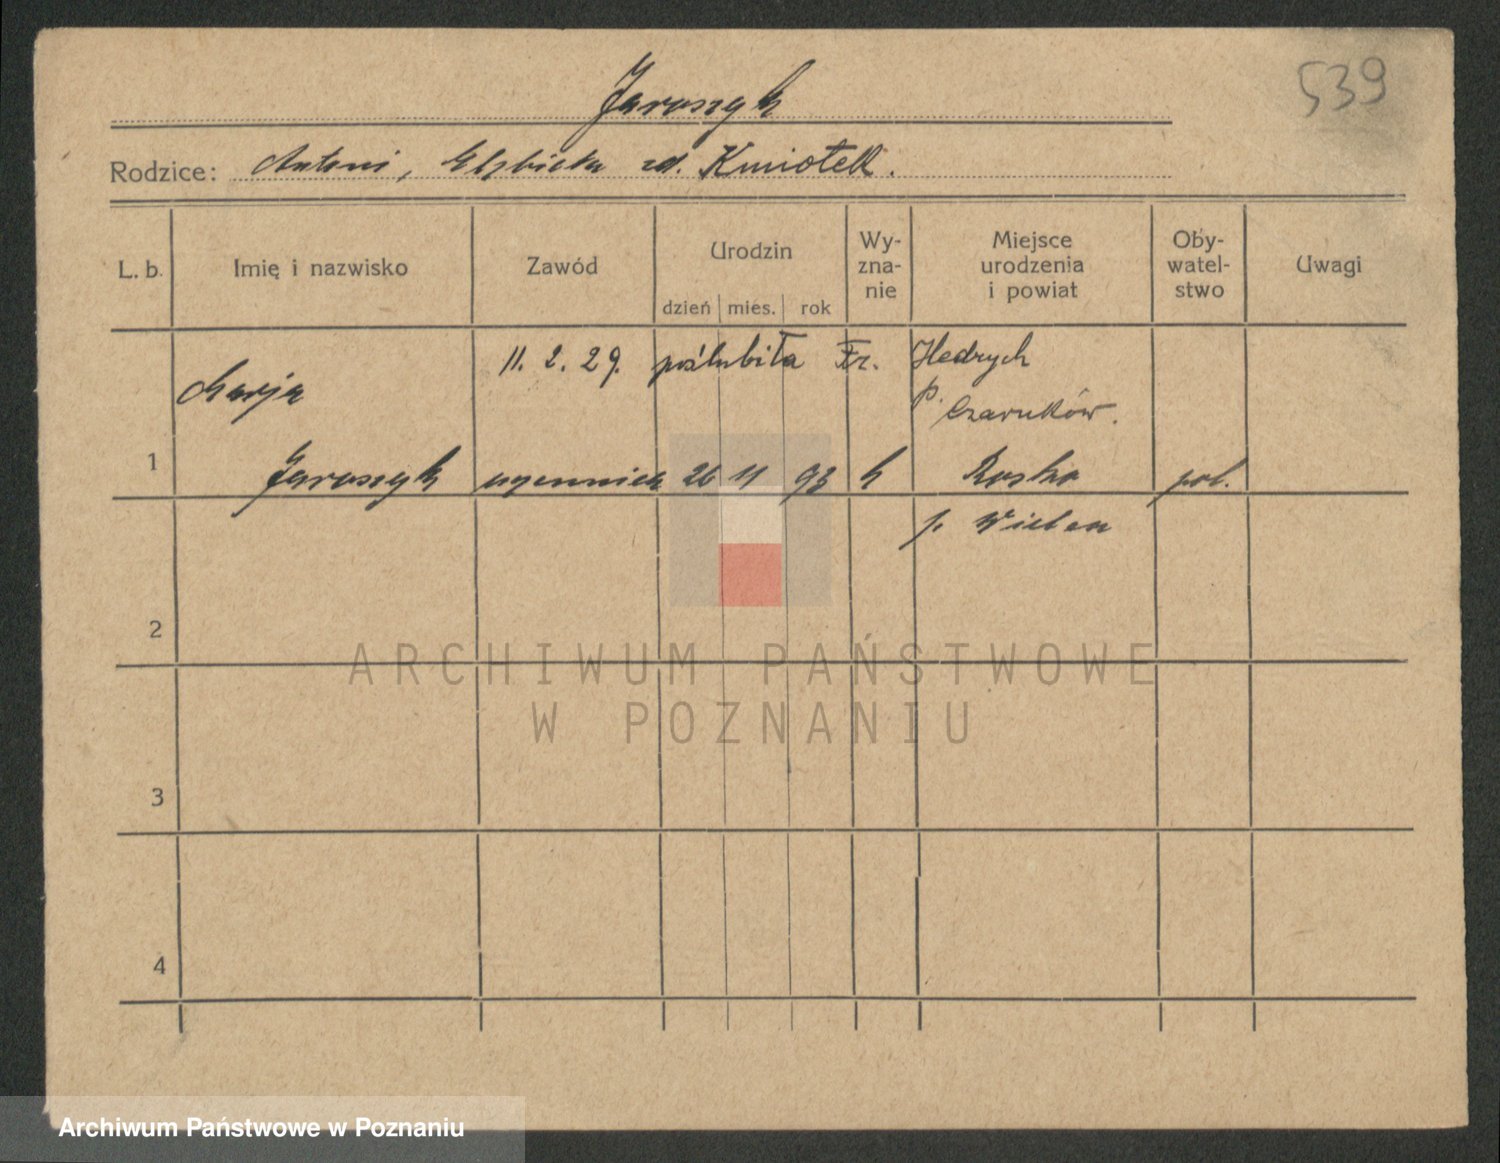 539
Jaroszyk
Rodzice: Antoni, Elżbieta zd. Kmiotek.
L. b. Imię i nazwisko Zawód Urodzin dzień mies. rok Wy-zna-nie Miejsce urodzenia i powiat Oby-watel-stwo Uwagi
11. 2. 29. poślubiła Fr. Hedrych
Marja p. Czarnków.
1 Jaroszyk 26 11 93 k Rosko pol.
p. Wieleń
2
ARCHIWUM PAŃSTWOWE
W POZNANIU
3
4
Archiwum Państwowe w Poznaniu